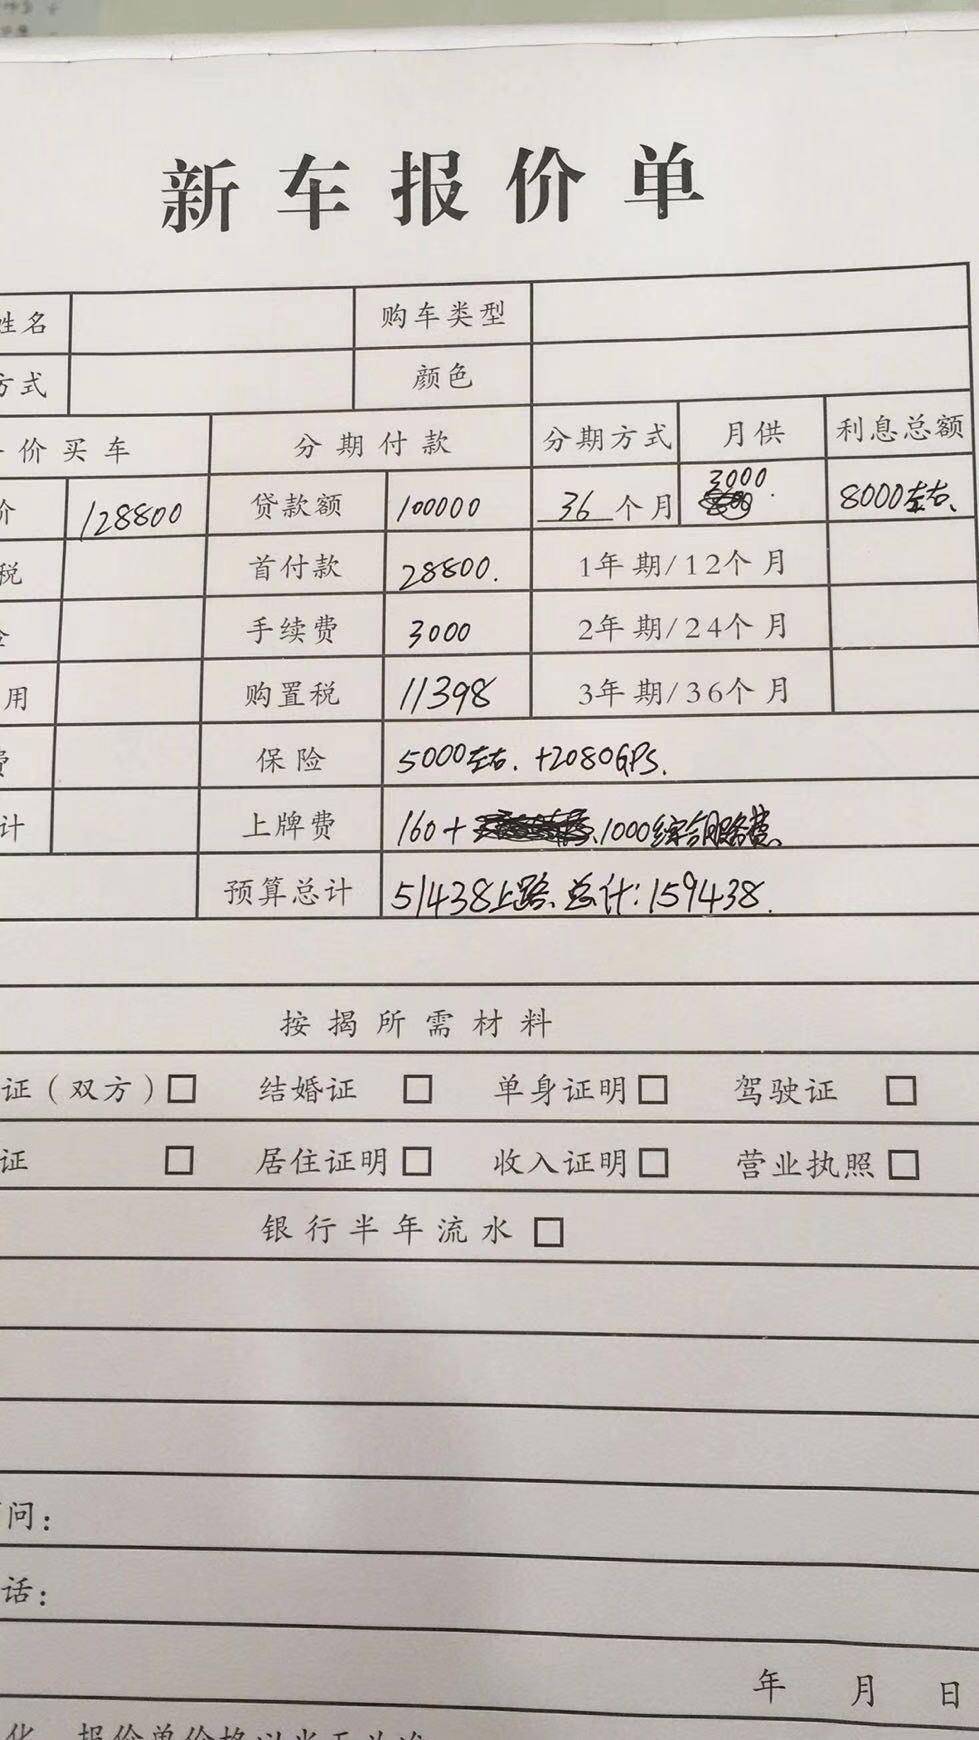 新车报价单
姓名 购车类型
方式 颜色
价买车 分期付款 分期方式 月供 利息总额
价 128800 贷款额 100000 36个月 3000. 8000左右、
税 首付款 28800. 1年期/12个月
手续费 3000 2年期/24个月
用 购置税 11398 3年期/36个月
费 保险 5000左右. +2080GPS.
计 上牌费 160+ 1000综合服务费、
预算总计 51438上路、总计:159438.
按揭所需材料
证（双方）□ 结婚证 □ 单身证明□ 驾驶证 □
证 □ 居住证明□ 收入证明□ 营业执照□
银行半年流水 □
问:
话:
年 月 日